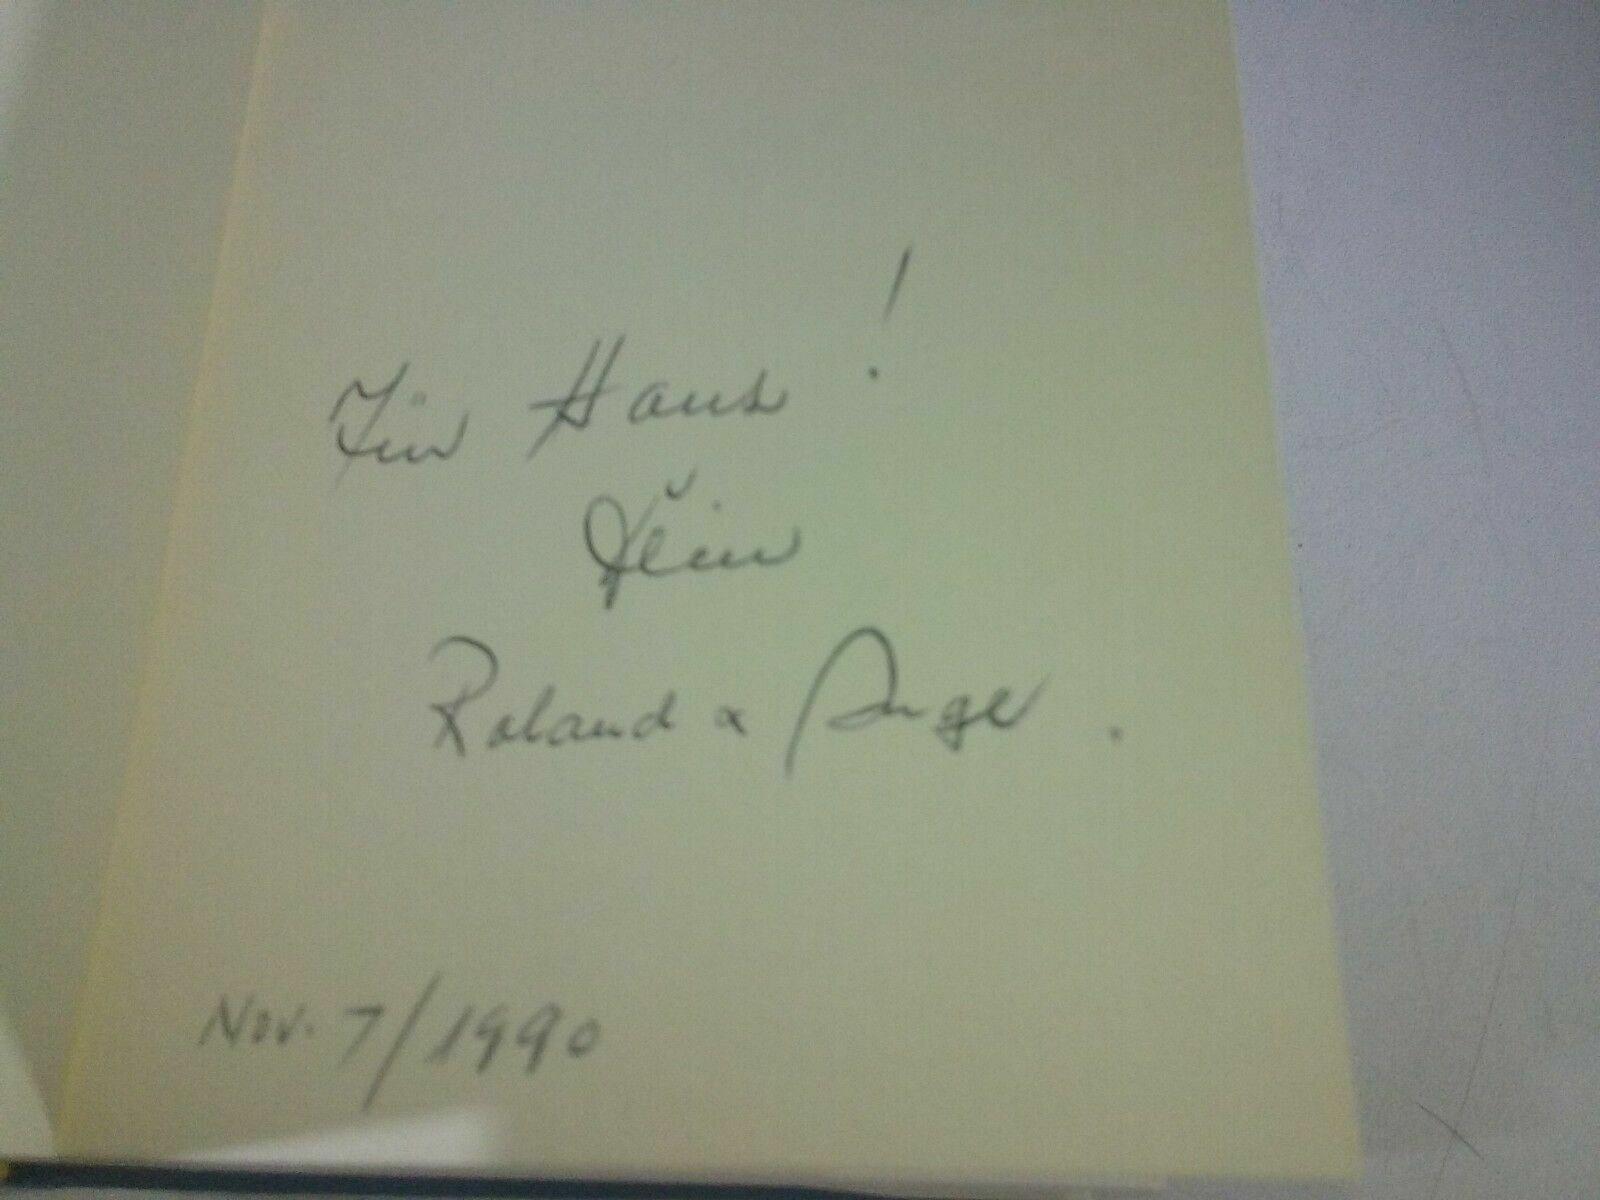 Für Hans!
Dein
Roland & Inge.
Nov. 7/1990